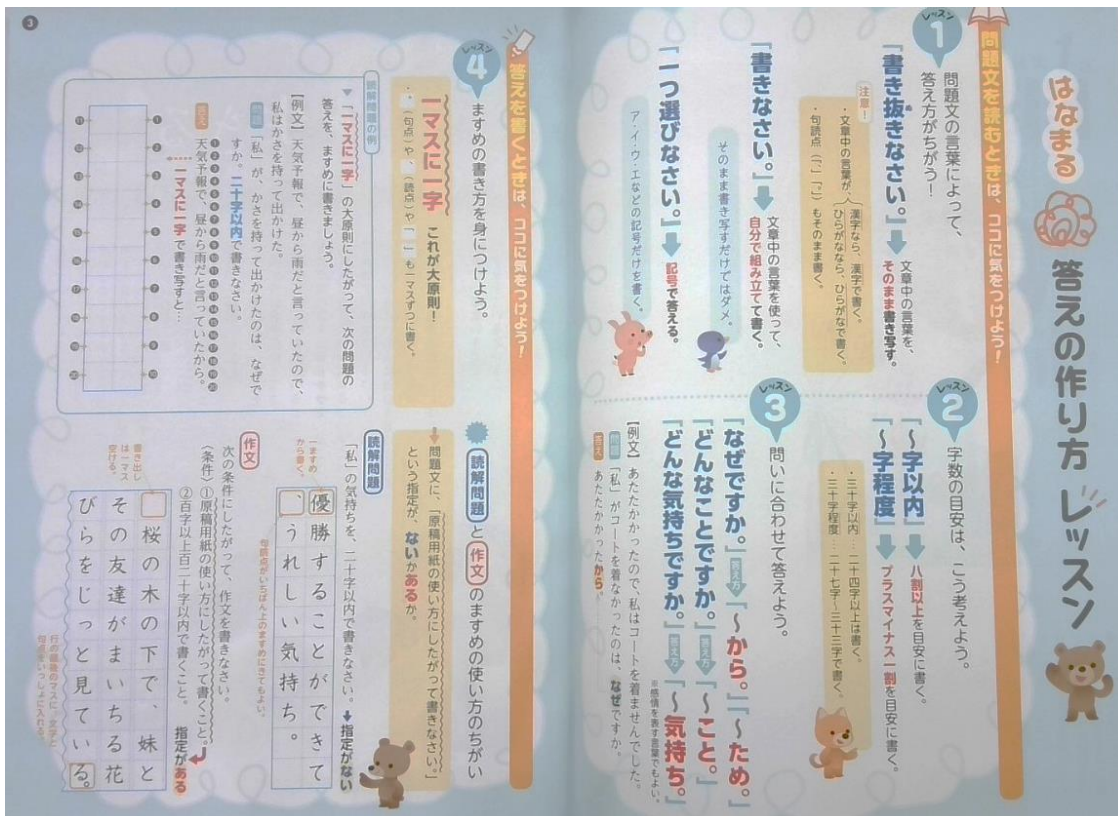 はなまる 答えの作り方 レッスン
問題文を読むときは、ココに気をつけよう!
レッスン
1
問題文の言葉によって、
答え方がちがう!
「書き抜きなさい。」
文章中の言葉を、
そのまま書き写す。
注意!
・文章中の言葉が、
漢字なら、漢字で書く。
ひらがななら、ひらがなで書く。
・句読点(「、」「。」)もそのまま書く。
「書きなさい。」
文章中の言葉を使って、
自分で組み立てて書く。
そのまま書き写すだけではダメ。
「一つ選びなさい。」
記号で答える。
ア・イ・ウ・エなどの記号だけを書く。
レッスン
2
字数の目安は、こう考えよう。
「〜字以内」
八割以上を目安に書く。
「〜字程度」
プラスマイナス一割を目安に書く。
・三十字以内…二十四字以上は書く。
・三十字程度…二十七字〜三十三字で書く。
レッスン
3
問いに合わせて答えよう。
「なぜですか。」 答え方 「〜から。」「〜ため。」
「どんなことですか。」 答え方 「〜こと。」
「どんな気持ちですか。」 答え方 「〜気持ち。」
※感情を表す言葉でもよい。
【例文】 あたたかかったので、私はコートを着ませんでした。
問題 「私」がコートを着なかったのは、なぜですか。
答え あたたかかったから。
答えを書くときは、ココに気をつけよう!
レッスン
4
ますめの書き方を身につけよう。
一マスに一字 これが大原則!
・。(句点)や、(読点)や「 」も一マスずつに書く。
読解問題の例
「一マスに一字」の大原則にしたがって、次の問題の
答えを、ますめに書きましょう。
【例文】天気予報で、昼から雨だと言っていたので、
私はかさを持って出かけた。
問題 「私」が、かさを持って出かけたのは、なぜで
すか。二十字以内で書きなさい。
①②③④⑤⑥⑦⑧⑨⑩⑪⑫⑬⑭⑮⑯⑰⑱⑲⑳
答え 天気予報で、昼から雨だと言っていたから。
一マスに一字で書き写すと…
①②③④⑤⑥⑦⑧⑨⑩
⑪⑫⑬⑭⑮⑯⑰⑱⑲⑳
読解問題と作文のますめの使い方のちがい
問題文に、「原稿用紙の使い方にしたがって書きなさい。」
という指定が、ないかあるか。
読解問題
「私」の気持ちを、二十字以内で書きなさい。
指定がない
一ますめから書く。
優勝することができて
、うれしい気持ち。
句読点がいちばん上のますめにきてもよい。
作文
次の条件にしたがって、作文を書きなさい。
(条件)①原稿用紙の使い方にしたがって書くこと。
②百字以上百二十字以内で書くこと。
指定がある
書き出しは一マス空ける。
桜の木の下で、妹と
その友達がまいちる花
びらをじっと見ている。
行の最後のマスに、文字と
句点をいっしょに入れる。
3